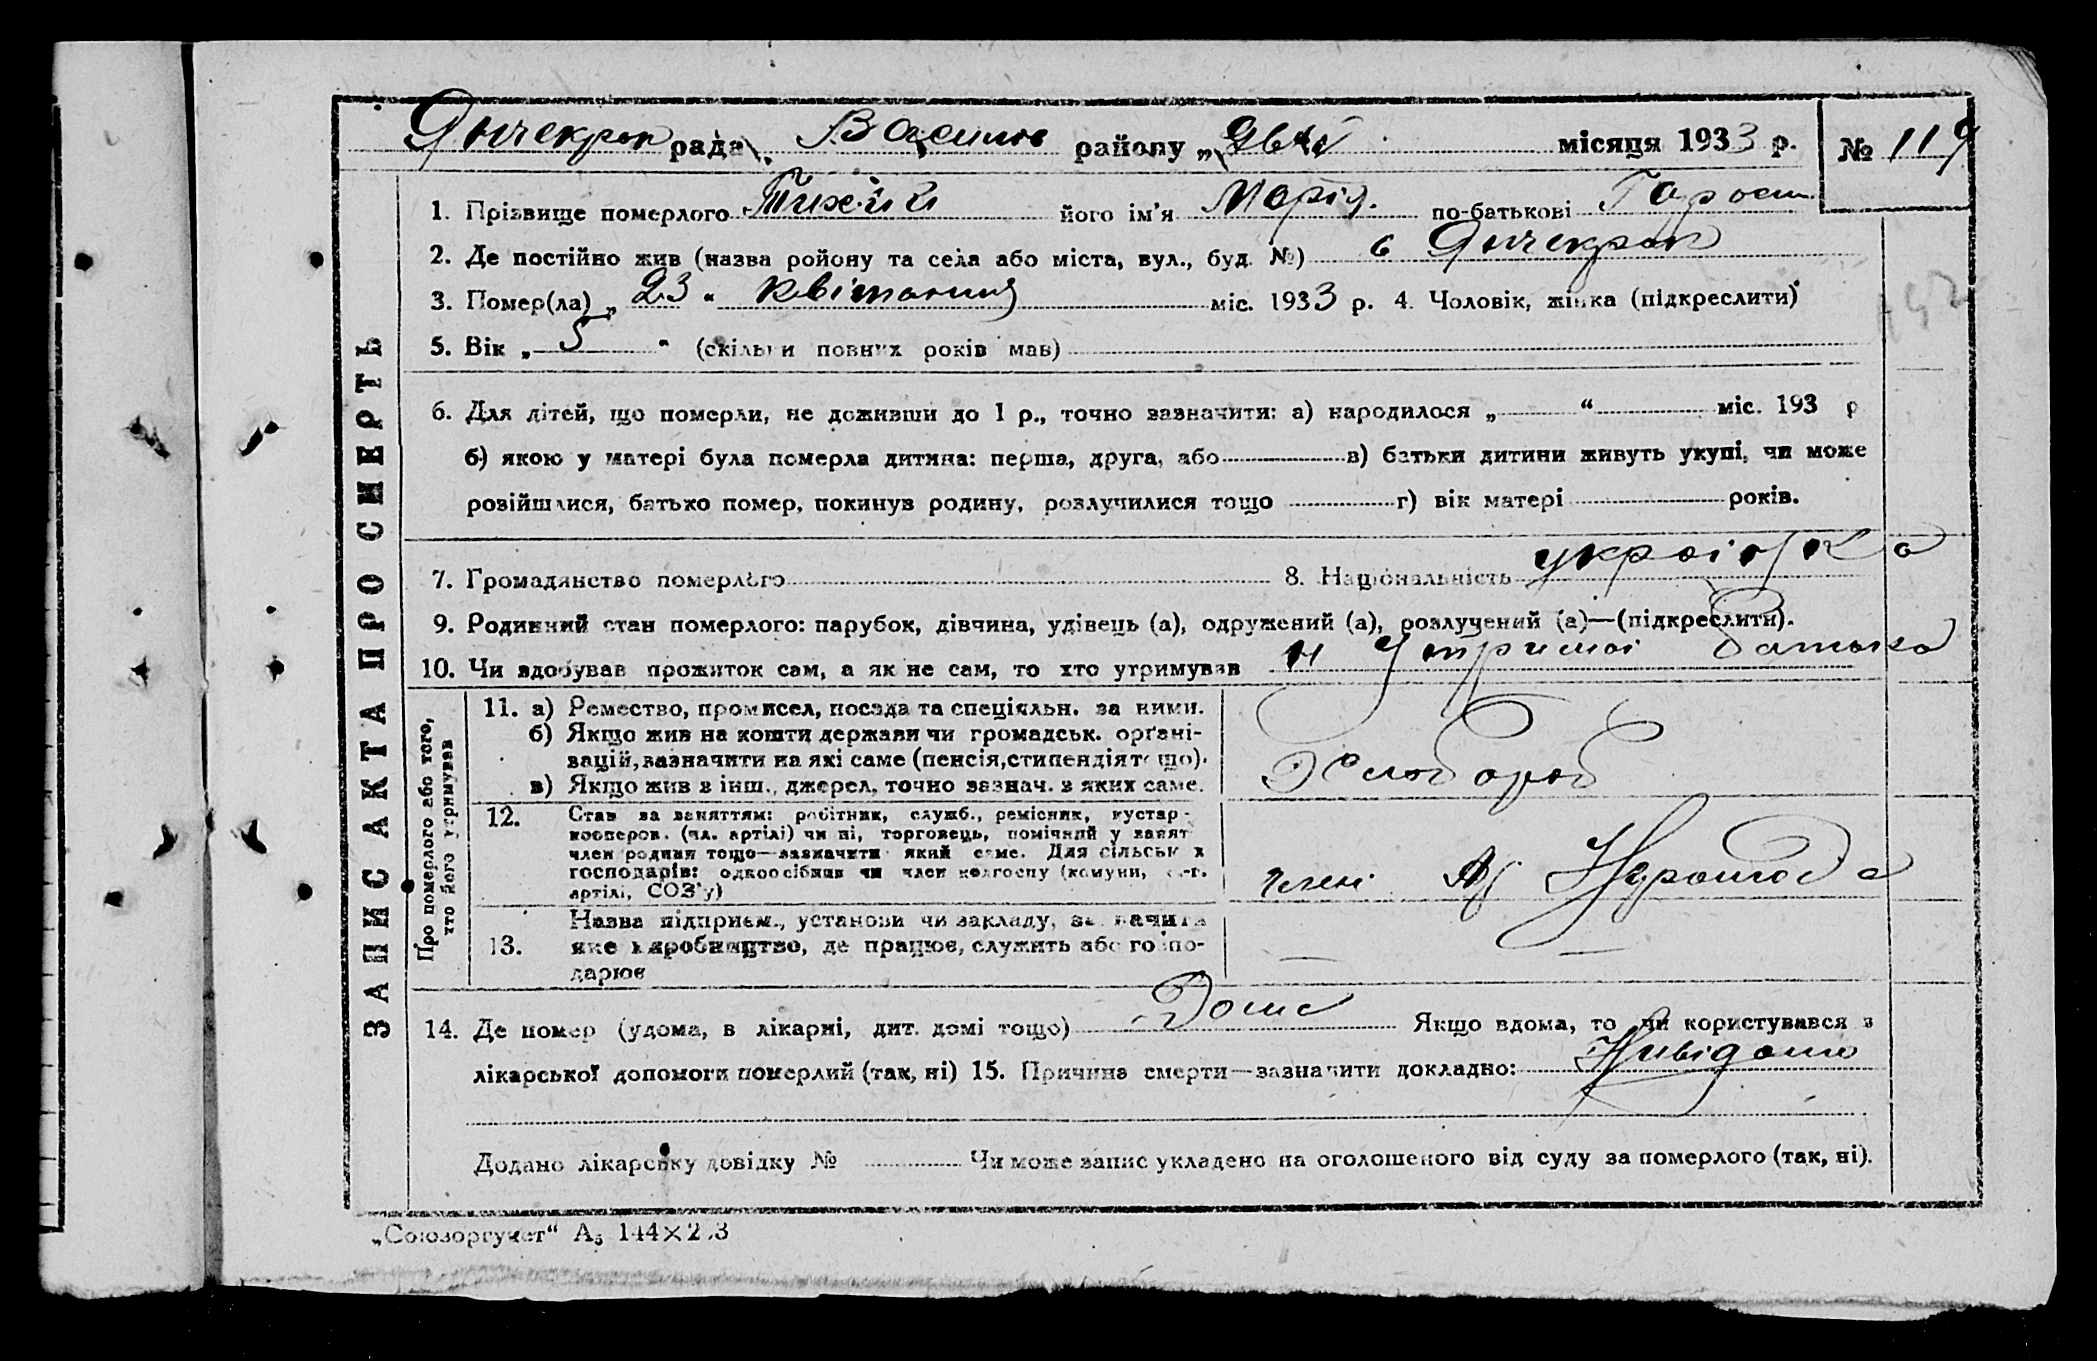 Янчекрак рада Василів району „ 26/IV місяця 1933 р. № 119
1. Прізвище померлого Тихий його ім'я Марія. по-батькові Тарасів
2. Де постійно жив (назва ройону та села або міста, вул., буд. №) с Янчекрак
3. Помер(ла) „ 23 “ квітання міс. 1933 р. 4. Чоловік, жінка (підкреслити)
5. Вік „ 5 “ (скільки повних років мав)
6. Для дітей, що померли, не доживши до 1 р., точно зазначити: а) народилося „ “ міс. 193 р
б) якою у матері була померла дитина: перша, друга, або в) батьки дитини живуть укупі, чи може
розійшлися, батько помер, покинув родину, розлучилися тощо г) вік матері років.
7. Громадянство померлого 8. Національність українка
9. Родинний стан померлого: парубок, дівчина, удівець (а), одружений (а), розлучений (а)—(підкреслити).
10. Чи здобував прожиток сам, а як не сам, то хто утримував н утримані батька
ЗАПИС АКТА ПРО СМЕРТЬ
Про померлого або того, хто його утримував
11. а) Ремество, промисел, посада та спеціяльн. за ними.
б) Якщо жив на кошти держави чи громадськ. орґані-
зацій, зазначити на які саме (пенсія, стипендія тощо).
в) Якщо жив з інш., джерел, точно зазнач. з яких саме.
Хлібороб
12. Став за заняттям: робітник, служб., ремісник, кустар-
кооперов. (чл. артілі) чи ні, торговець, помічний у занят
член родини тощо—зазначити який саме. Для сільськ х
господарів: одноосібник чи член колгоспу (комуни, с.-г.
артілі, СОЗ'у)
член
13. Назва підприєм., установи чи закладу, зазначити
яке виробництво, де працює, служить або госпо-
дарює —
14. Де помер (удома, в лікарні, дит. домі тощо) Дома Якщо вдома, то чи користувався з
лікарської допомоги померлий (так, ні) 15. Причина смерти—зазначити докладно: Нивідомо
Додано лікарську довідку № Чи може запис укладено на оголошеного від суду за померлого (так, ні).
„Союзоргучет“ А₅ 144×2.3